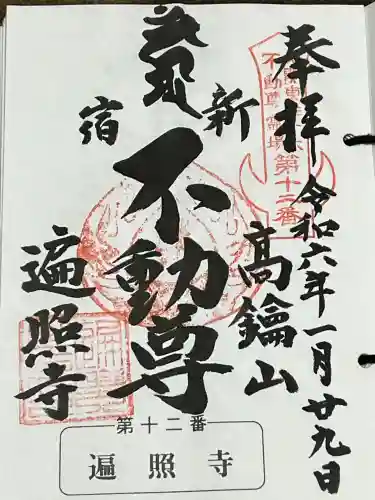 奉拝
令和六年一月廿九日
新宿
高鑰山
不動尊
遍照寺
不動尊霊場
第十二番
第十二番
遍照寺